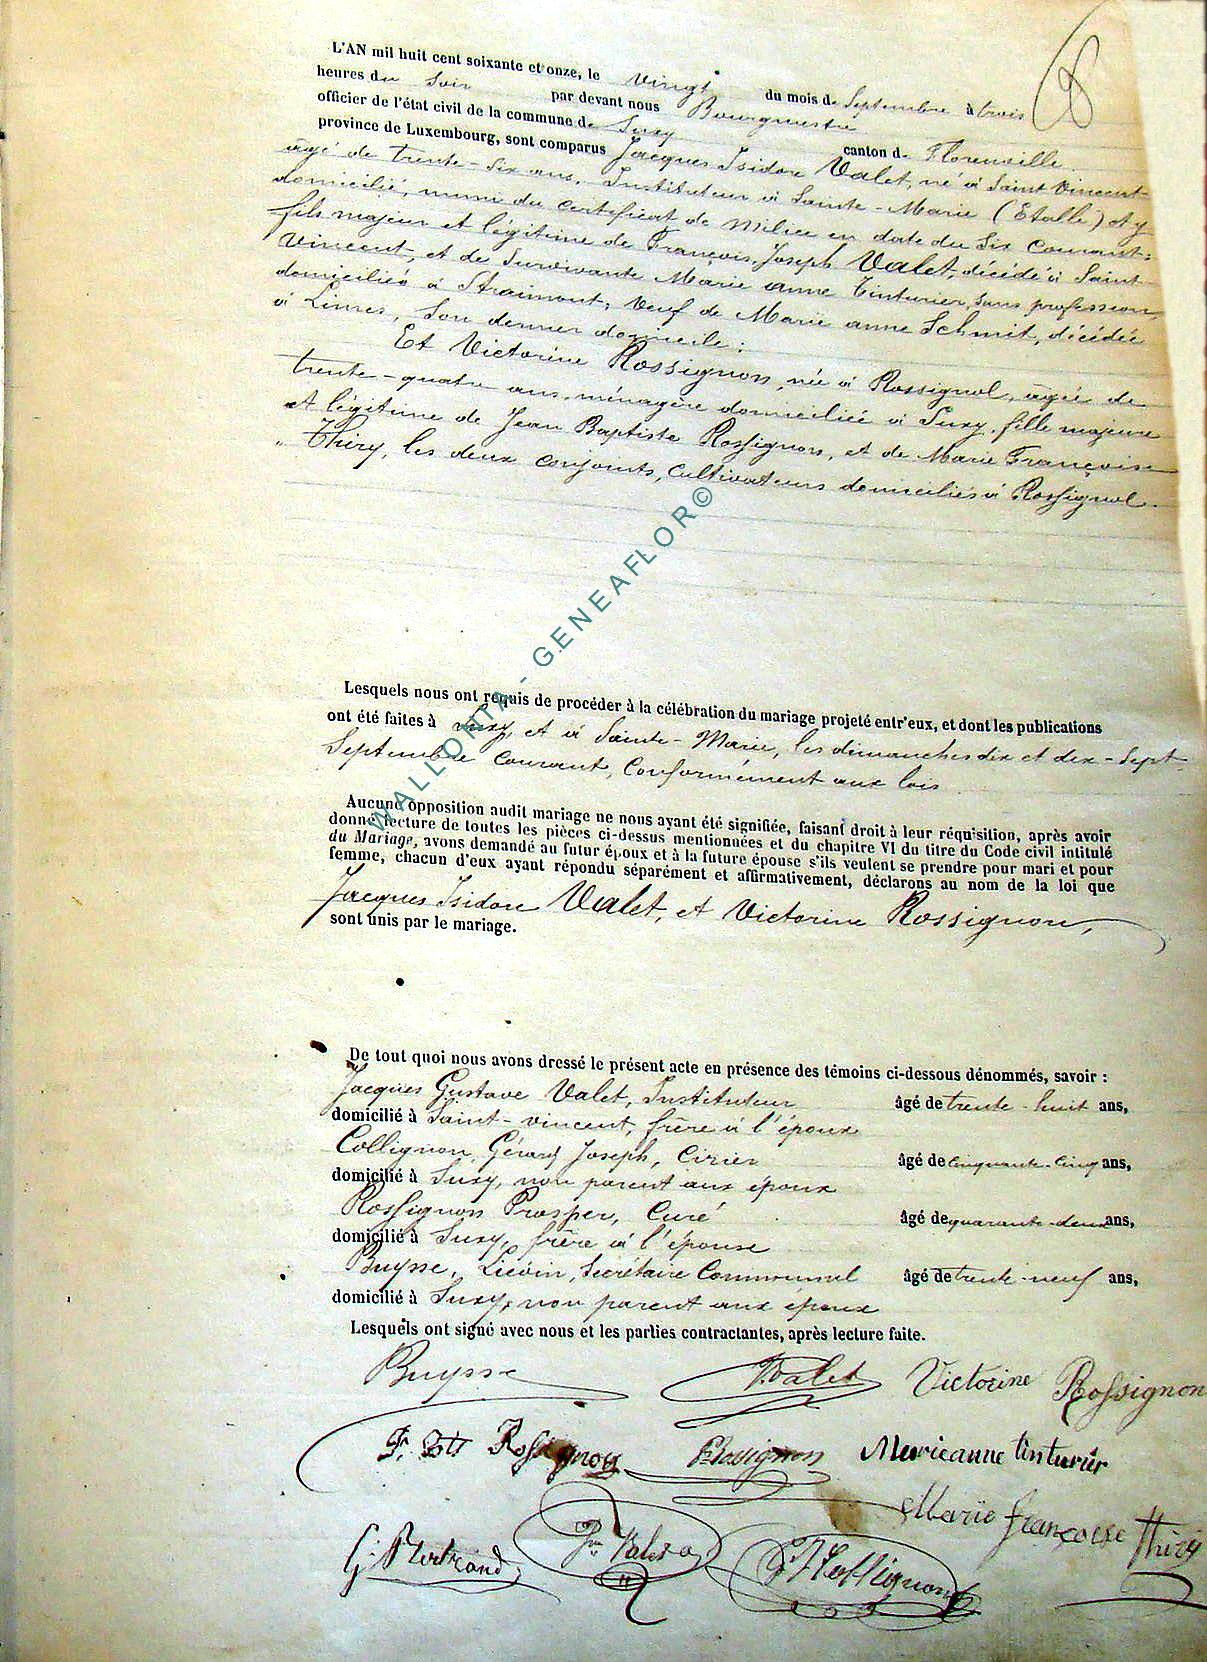 8
L'AN mil huit cent soixante et onze, le vingt du mois de Septembre à trois
heures du Soir par devant nous Bourgmestre
officier de l'état civil de la commune de Suxy canton de Florenville
province de Luxembourg, sont comparus Jacques Isidore Valet, né à Saint Vincent
âgé de trente-six ans, Instituteur à Sainte-Marie (Etalle) et y
domicilié, muni du certificat de Milice en date du Six Courant;
fils majeur et légitime de François Joseph Valet, décédé à Saint
Vincent, et de Survivante Marie anne Tinturier, sans profession,
domiciliée à Straimont; Veuf de Marie anne Schmit, décédée
à Limes, Son dernier domicile;
Et Victorine Rossignon, née à Rossignol, âgée de
trente-quatre ans, ménagère domiciliée à Suxy, fille majeure
et légitime de Jean Baptiste Rossignon, et de Marie Françoise
Thiry, les deux conjoints, Cultivateurs domiciliés à Rossignol.
Lesquels nous ont requis de procéder à la célébration du mariage projeté entr'eux, et dont les publications
ont été faites à Suxy, et à Sainte-Marie, les dimanches dix et dix-Sept
Septembre Courant, Conformément aux lois
Aucune opposition audit mariage ne nous ayant été signifiée, faisant droit à leur réquisition, après avoir
donné lecture de toutes les pièces ci-dessus mentionuées et du chapitre VI du titre du Code civil intitulé
du Mariage, avons demandé au futur époux et à la future épouse s'ils veulent se prendre pour mari et pour
femme, chacun d'eux ayant répondu séparément et affirmativement, déclarons au nom de la loi que
Jacques Isidore Valet, et Victorine Rossignon,
sont unis par le mariage.
De tout quoi nous avons dressé le présent acte en présence des témoins ci-dessous dénommés, savoir :
Jacques Gustave Valet, Instituteur âgé de trente-huit ans,
domicilié à Saint-vincent, frère à l'époux
Collignon, Gérard Joseph, Cirier âgé de cinquante-cinq ans,
domicilié à Suxy, non parent aux époux
Rossignon Prosper, Curé âgé de quarante-deux ans,
domicilié à Suxy, frère à l'épouse
Buysse, Liévin, Secrétaire Communal âgé de trente-neuf ans,
domicilié à Suxy, non parent aux époux
Lesquels ont signé avec nous et les parties contractantes, après lecture faite.
Buysse Valet Victorine Rossignon
Rossignon Rossignon Marieanne tinturier
Marie françoise thiry
G. Bertrand Valet Rossignon
WALLONIA - GENEAFLOR©